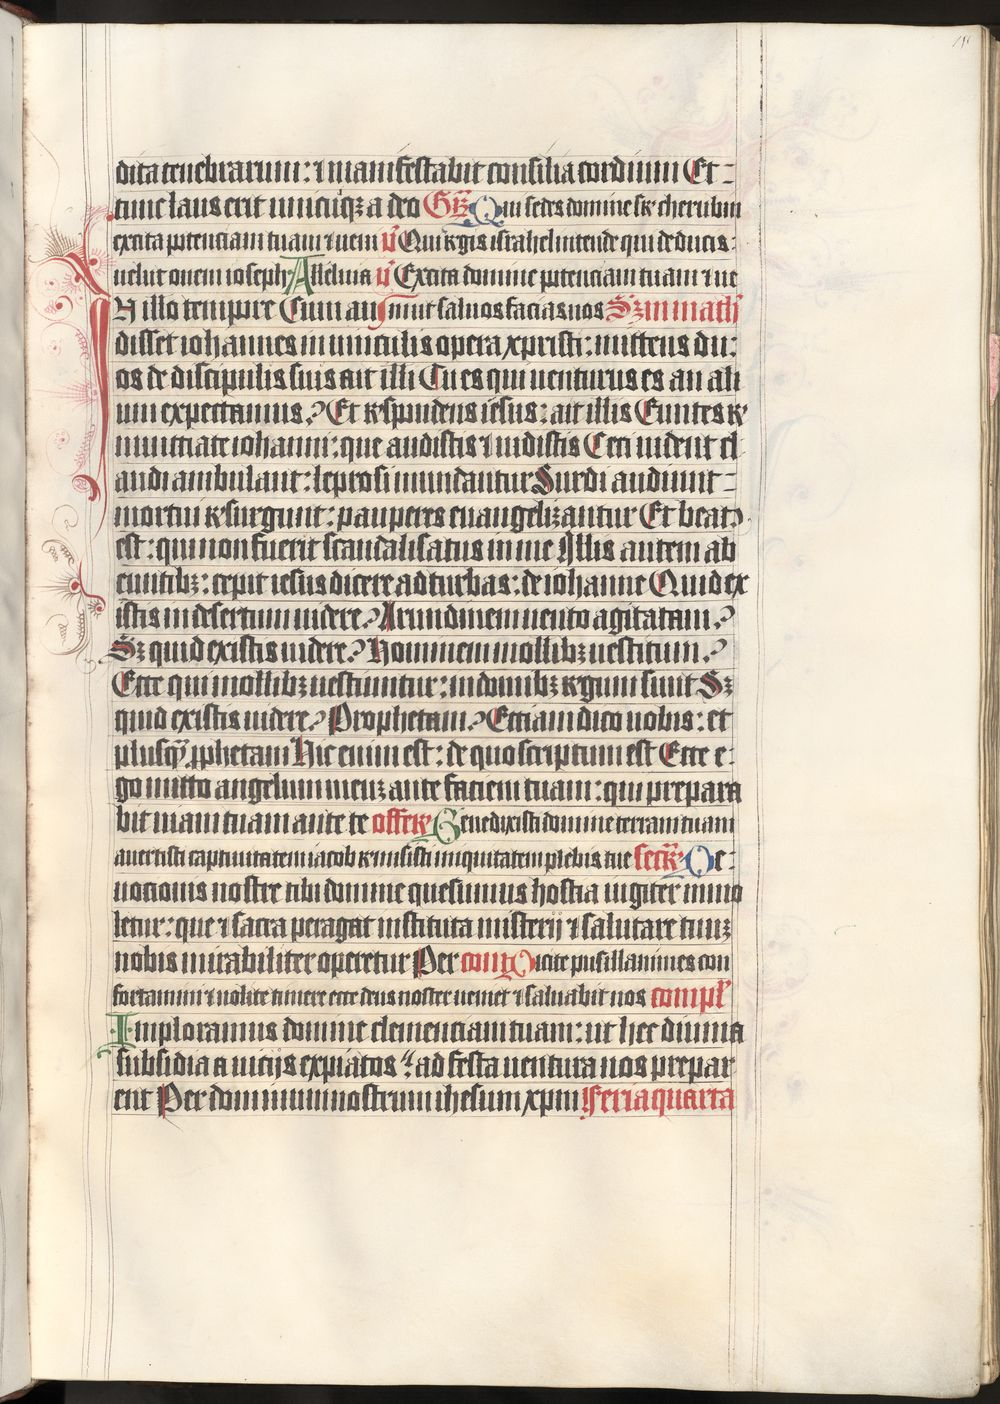 dita tenebrarum: ⁊ manifestabit consilia cordium Et-
tunc laus erit unicuiqꝫ a deo Gr̄ Qui sedes domine sr̄ cherubin
excita potenciam tuam ⁊ ueni v̄ Qui regis israhel intende qui deducis:
uelut ouem ioseph Alleluia v̄ Excita domine potenciam tuam ⁊ ue
N illo tempore Cum au nit ut saluos facias nos Sꝫm math̄
disset iohannes in uinculis opera xpristi: mittens du:
os de discipulis suis ait illi Tu es qui uenturus es an ali
um expectamus? Et respondens iesus: ait illis Euntes re
nunttiate iohanni: que audistis ⁊ uidistis Ceci uident cl
audi ambulant: leprosi mundantur Surdi audiunt-
mortui resurgunt: pauperes euangelizantur Et beatꝰ
est: qui non fuerit scandalisatus in me Illis autem ab
euntibꝫ: cepit iesus dicere ad turbas: de iohanne Quid ex
istis in desertum uidere? Arundinem uento agitatam?
Sꝫ quid existis uidere? Hominem mollibꝫ uestitum?
Ecce qui mollibꝫ uestiuntur: in domibꝫ regum sunt Sꝫ
quid existis uidere? Prophetam? Ettiam dico uobis: et
plusqꝫ ꝓphetam Hic enim est: de quo scriptum est Ecce e-
go mitto angelum meuꝫ ante faciem tuam: qui prepara
bit uiam tuam ante te offer̄ Benedixisti domine terram tuam
auertisti captiuitatem iacob remisisti iniquitatem plebis tue secr̄ De:
uocionis nostre tibi domine quesumus hostia iugiter immo
letur: que ⁊ sacra peragat instituta misterij ⁊ salutare tuuꝫ
nobis mirabiliter operetur Per com̄ Dicite pusillanimes con
fortamini ⁊ nolite timere ecce deus noster ueniet ⁊ saluabit nos compl̄
Imploramus domine clemenciam tuam: ut hec diuina
subsidia a uicijs expiatos ad festa uentura nos prepar
ent Per dominum nostrum ihesum xpm Feria quarta